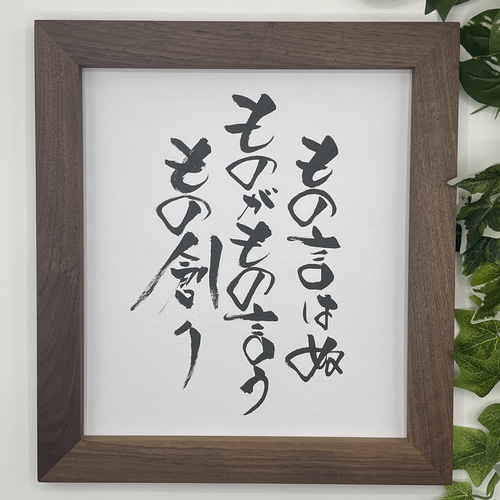 もの言はぬ
ものがもの言う
もの創り